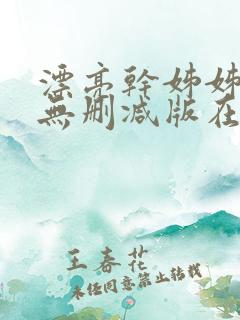 漂亮幹姊姊
無刪减版在
王春花
未经同意禁止转载